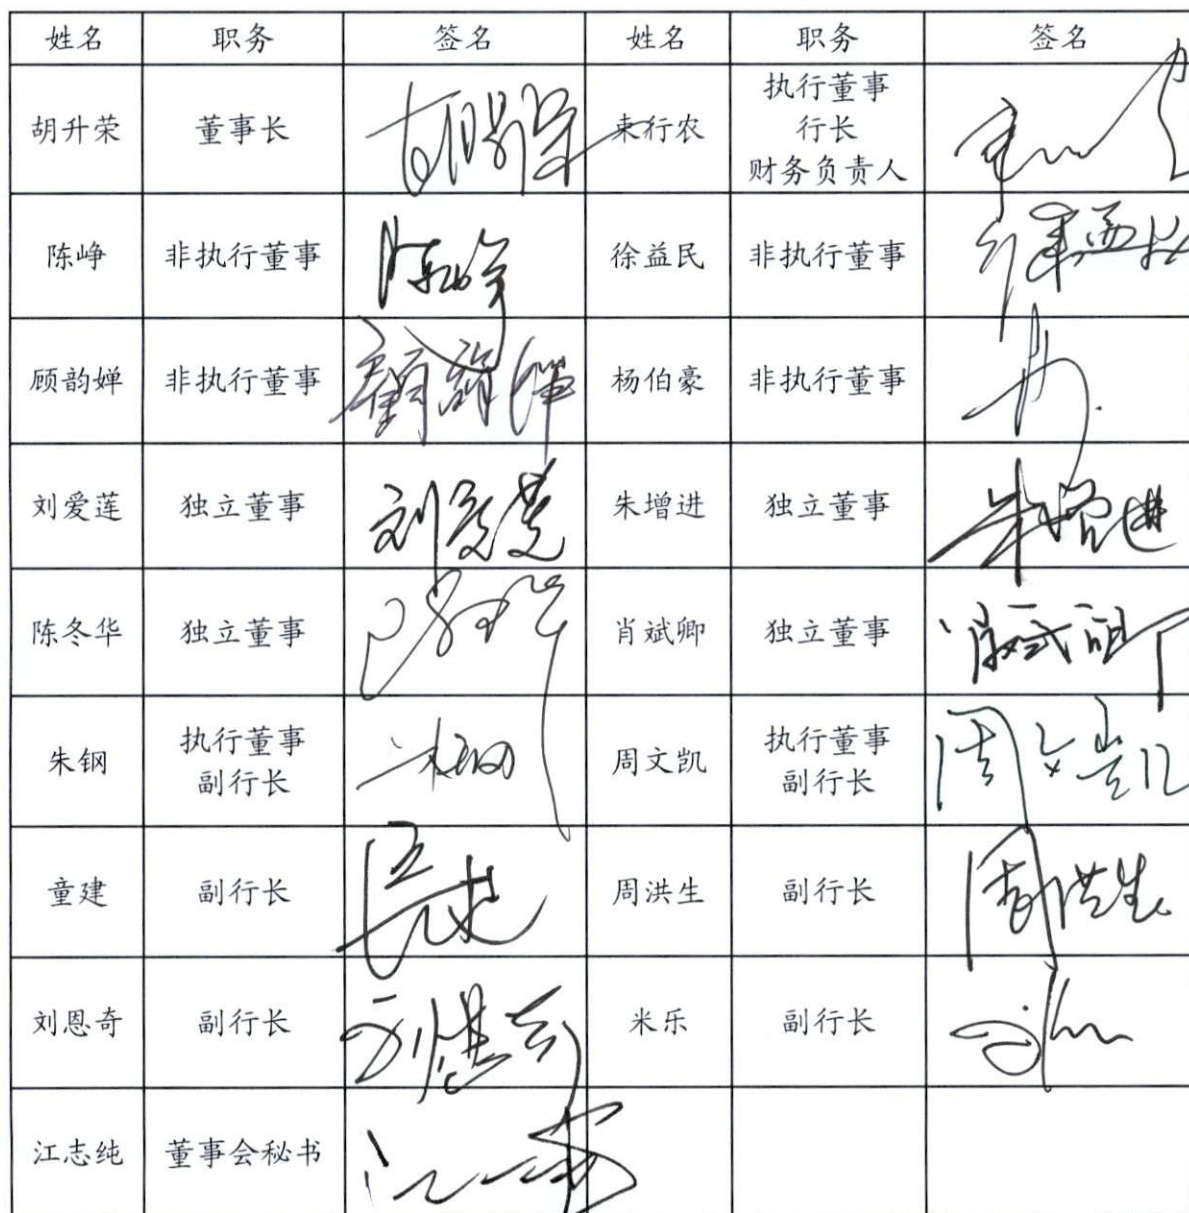 姓名 职务 签名 姓名 职务 签名
胡升荣 董事长 胡升荣 束行农 执行董事
行长
财务负责人
陈峥 非执行董事 陈峥 徐益民 非执行董事 徐益民
顾韵婵 非执行董事 顾韵婵 杨伯豪 非执行董事
刘爱莲 独立董事 刘爱莲 朱增进 独立董事 朱增进
陈冬华 独立董事 陈冬华 肖斌卿 独立董事 肖斌卿
朱钢 执行董事
副行长 朱钢 周文凯 执行董事
副行长 周文凯
童建 副行长 周洪生 副行长 周洪生
刘恩奇 副行长 刘恩奇 米乐 副行长
江志纯 董事会秘书